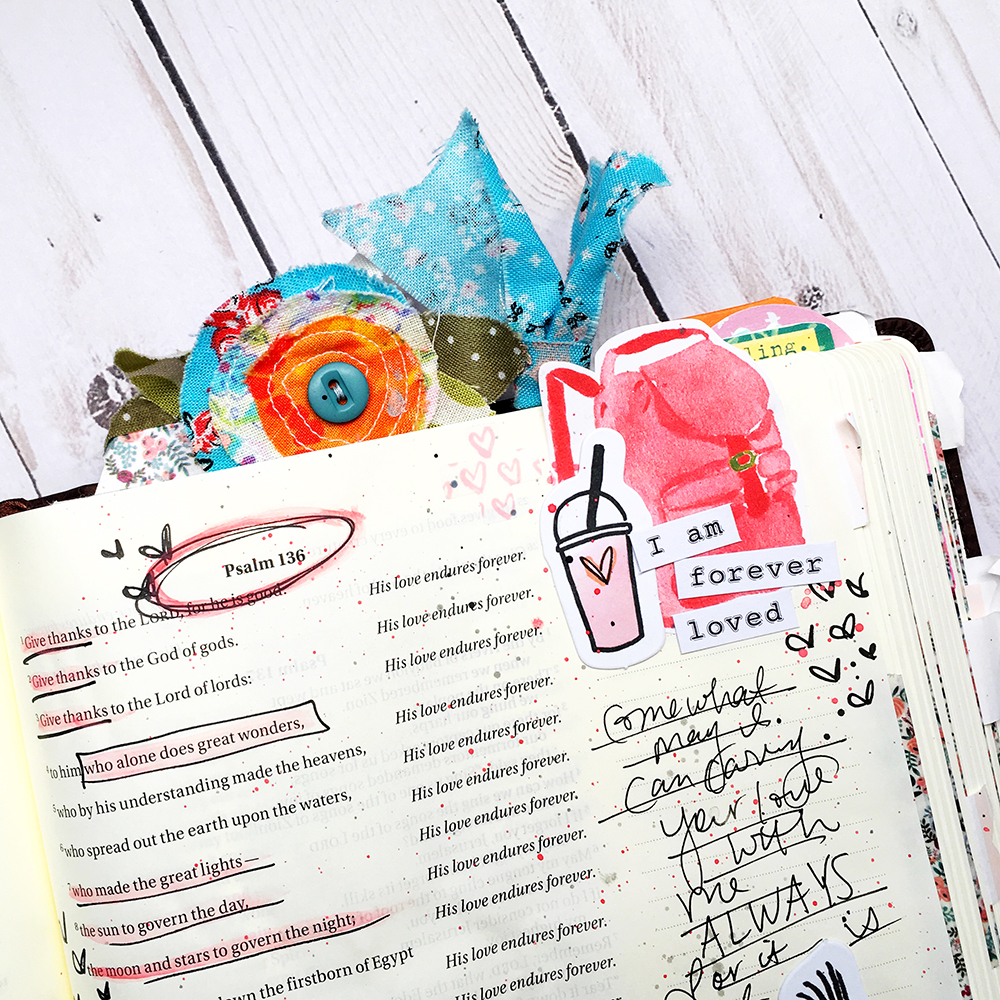 ling.
Psalm 136
¹Give thanks to the LORD, for he is good. His love endures forever.
²Give thanks to the God of gods. His love endures forever.
³Give thanks to the Lord of lords: His love endures forever.
⁴to him who alone does great wonders, His love endures forever.
⁵who by his understanding made the heavens, His love endures forever.
⁶who spread out the earth upon the waters, His love endures forever.
⁷who made the great lights— His love endures forever.
⁸the sun to govern the day, His love endures forever.
⁹the moon and stars to govern the night; His love endures forever.
down the firstborn of Egypt His love endures forever.
His love endures forever.
His love endures forever.
I am
forever
loved
Come what
may I
can carry
your love
with
me
ALWAYS
for it is